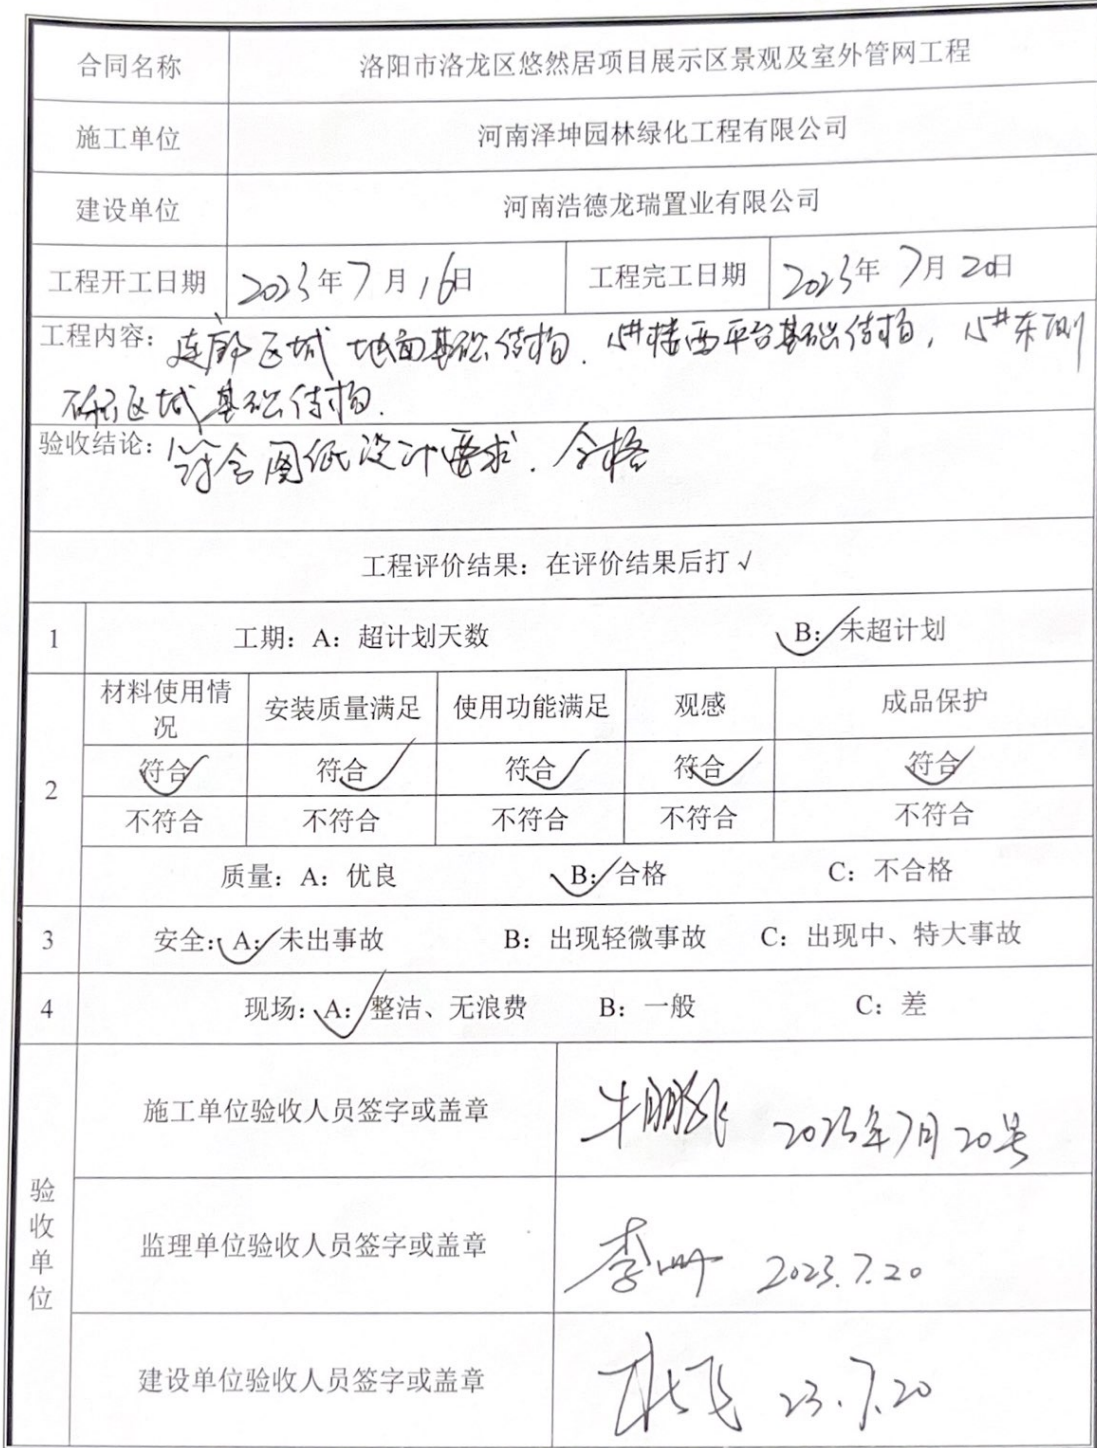 合同名称 洛阳市洛龙区悠然居项目展示区景观及室外管网工程
施工单位 河南泽坤园林绿化工程有限公司
建设单位 河南浩德龙瑞置业有限公司
工程开工日期 2023年7月16日 工程完工日期 2023年7月20日
工程内容: 连廊区域 地面基础结构. 5#楼西平台基础结构, 5#东侧
区域基础结构.
验收结论: 符合图纸设计要求. 合格
工程评价结果: 在评价结果后打√
1 工期: A: 超计划天数 B: 未超计划
材料使用情况 安装质量满足 使用功能满足 观感 成品保护
2 符合 符合 符合 符合 符合
不符合 不符合 不符合 不符合 不符合
质量: A: 优良 B: 合格 C: 不合格
3 安全: A: 未出事故 B: 出现轻微事故 C: 出现中、特大事故
4 现场: A: 整洁、无浪费 B: 一般 C: 差
验收单位
施工单位验收人员签字或盖章 牛鹏飞 2023年7月20号
监理单位验收人员签字或盖章 李 2023.7.20
建设单位验收人员签字或盖章 23.7.20